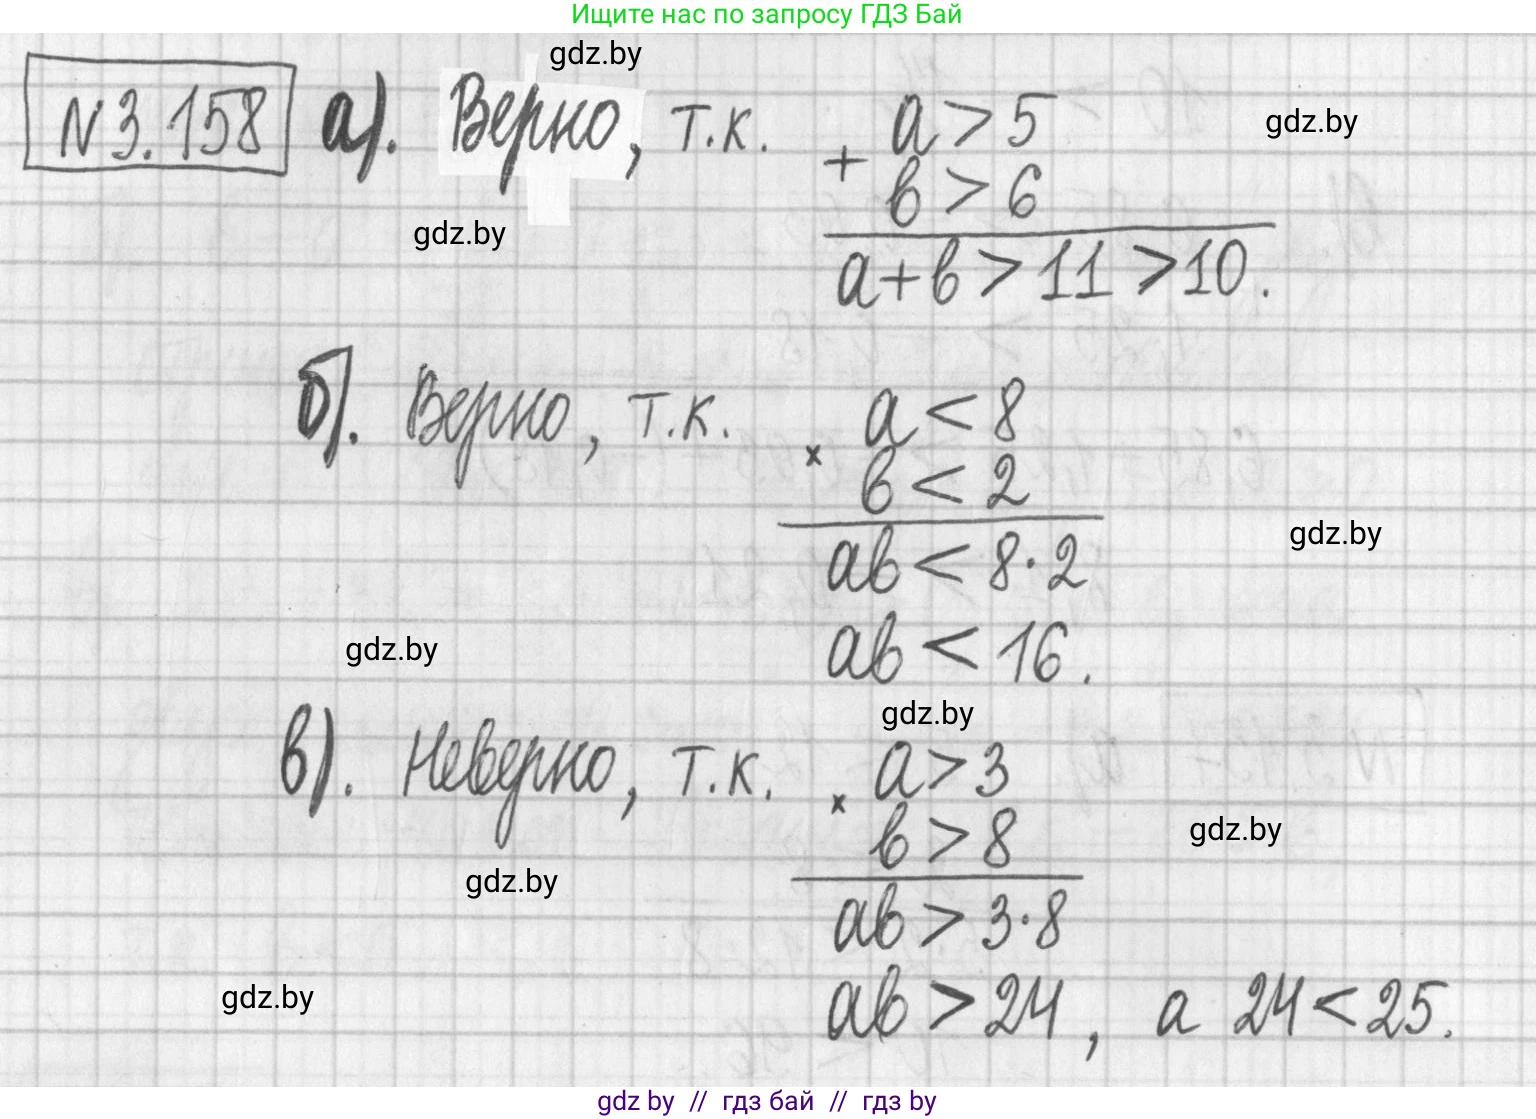 Ищите нас по запросу ГДЗ Бай
gdz.by
N3.158 а). Верно, т.к. + a > 5
gdz.by
b > 6
gdz.by
a+b > 11 > 10.
б). Верно, т.к. × a < 8
b < 2
ab < 8·2
gdz.by
gdz.by
ab < 16.
gdz.by
в). Неверно, т.к. × a > 3
b > 8
gdz.by
gdz.by
ab > 3·8
gdz.by
ab > 24, а 24 < 25.
gdz by // гдз бай // гдз by